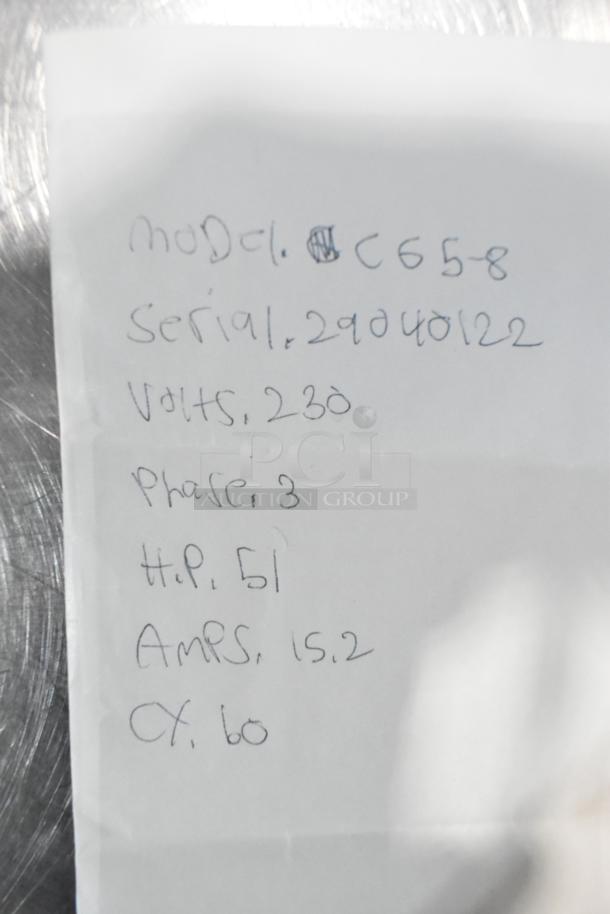 MODEL. C65-8
Serial. 29040122
Volts. 230
PCI
AUCTION GROUP
Phase. 3
H.P. 51
AMPS. 15.2
CY. 60